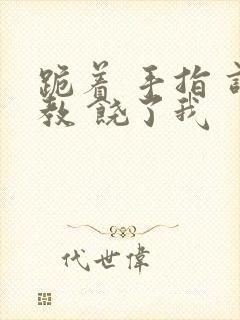 跪着 手指
教 饶了我
代世偉